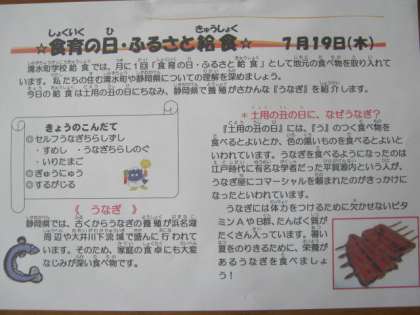 ☆食育の日・ふるさと給食☆ 7月19日(木)
清水町学校給食では、月に1回「食育の日・ふるさと給食」として地元の食べ物を取り入れて
います。私たちの住む清水町や静岡県についての理解を深めましょう。
今日の給食は土用の丑の日にちなみ、静岡県で養殖がさかんな『うなぎ』を紹介します。
きょうのこんだて
◎セルフうなぎちらしずし
・すめし ・うなぎちらしのぐ
・いりたまご
◎ぎゅうにゅう
◎するがじる
《 うなぎ 》
静岡県では、古くからうなぎの養殖が浜名湖
周辺や大井川下流域で盛んに行われて
います。そのため、家庭の食卓にも大変
なじみが深い食べ物です。
＊土用の丑の日に、なぜうなぎ？
『土用の丑の日』には、『う』のつく食べ物
を食べるとよいとか、色の黒いものを食べるとよいと
いわれています。うなぎを食べるようになったのは
江戸時代に有名な学者だった平賀源内という人が、
うなぎ屋にコマーシャルを頼まれたのがきっかけに
なったといわれています。
うなぎには体力をつけるために欠かせないビタ
ミンAやB群、たんぱく質が
たくさん入っています。暑い
夏をのりきるために、栄養が
あるうなぎを食べましょ
う！